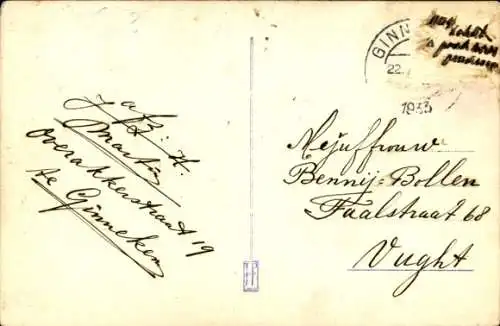 afz: H.
Martin
Overakkerstraat 19
te Ginneken
GINN
22
1933
Mejuffrouw
Bennij-Bollen
Taalstraat 68
Vught